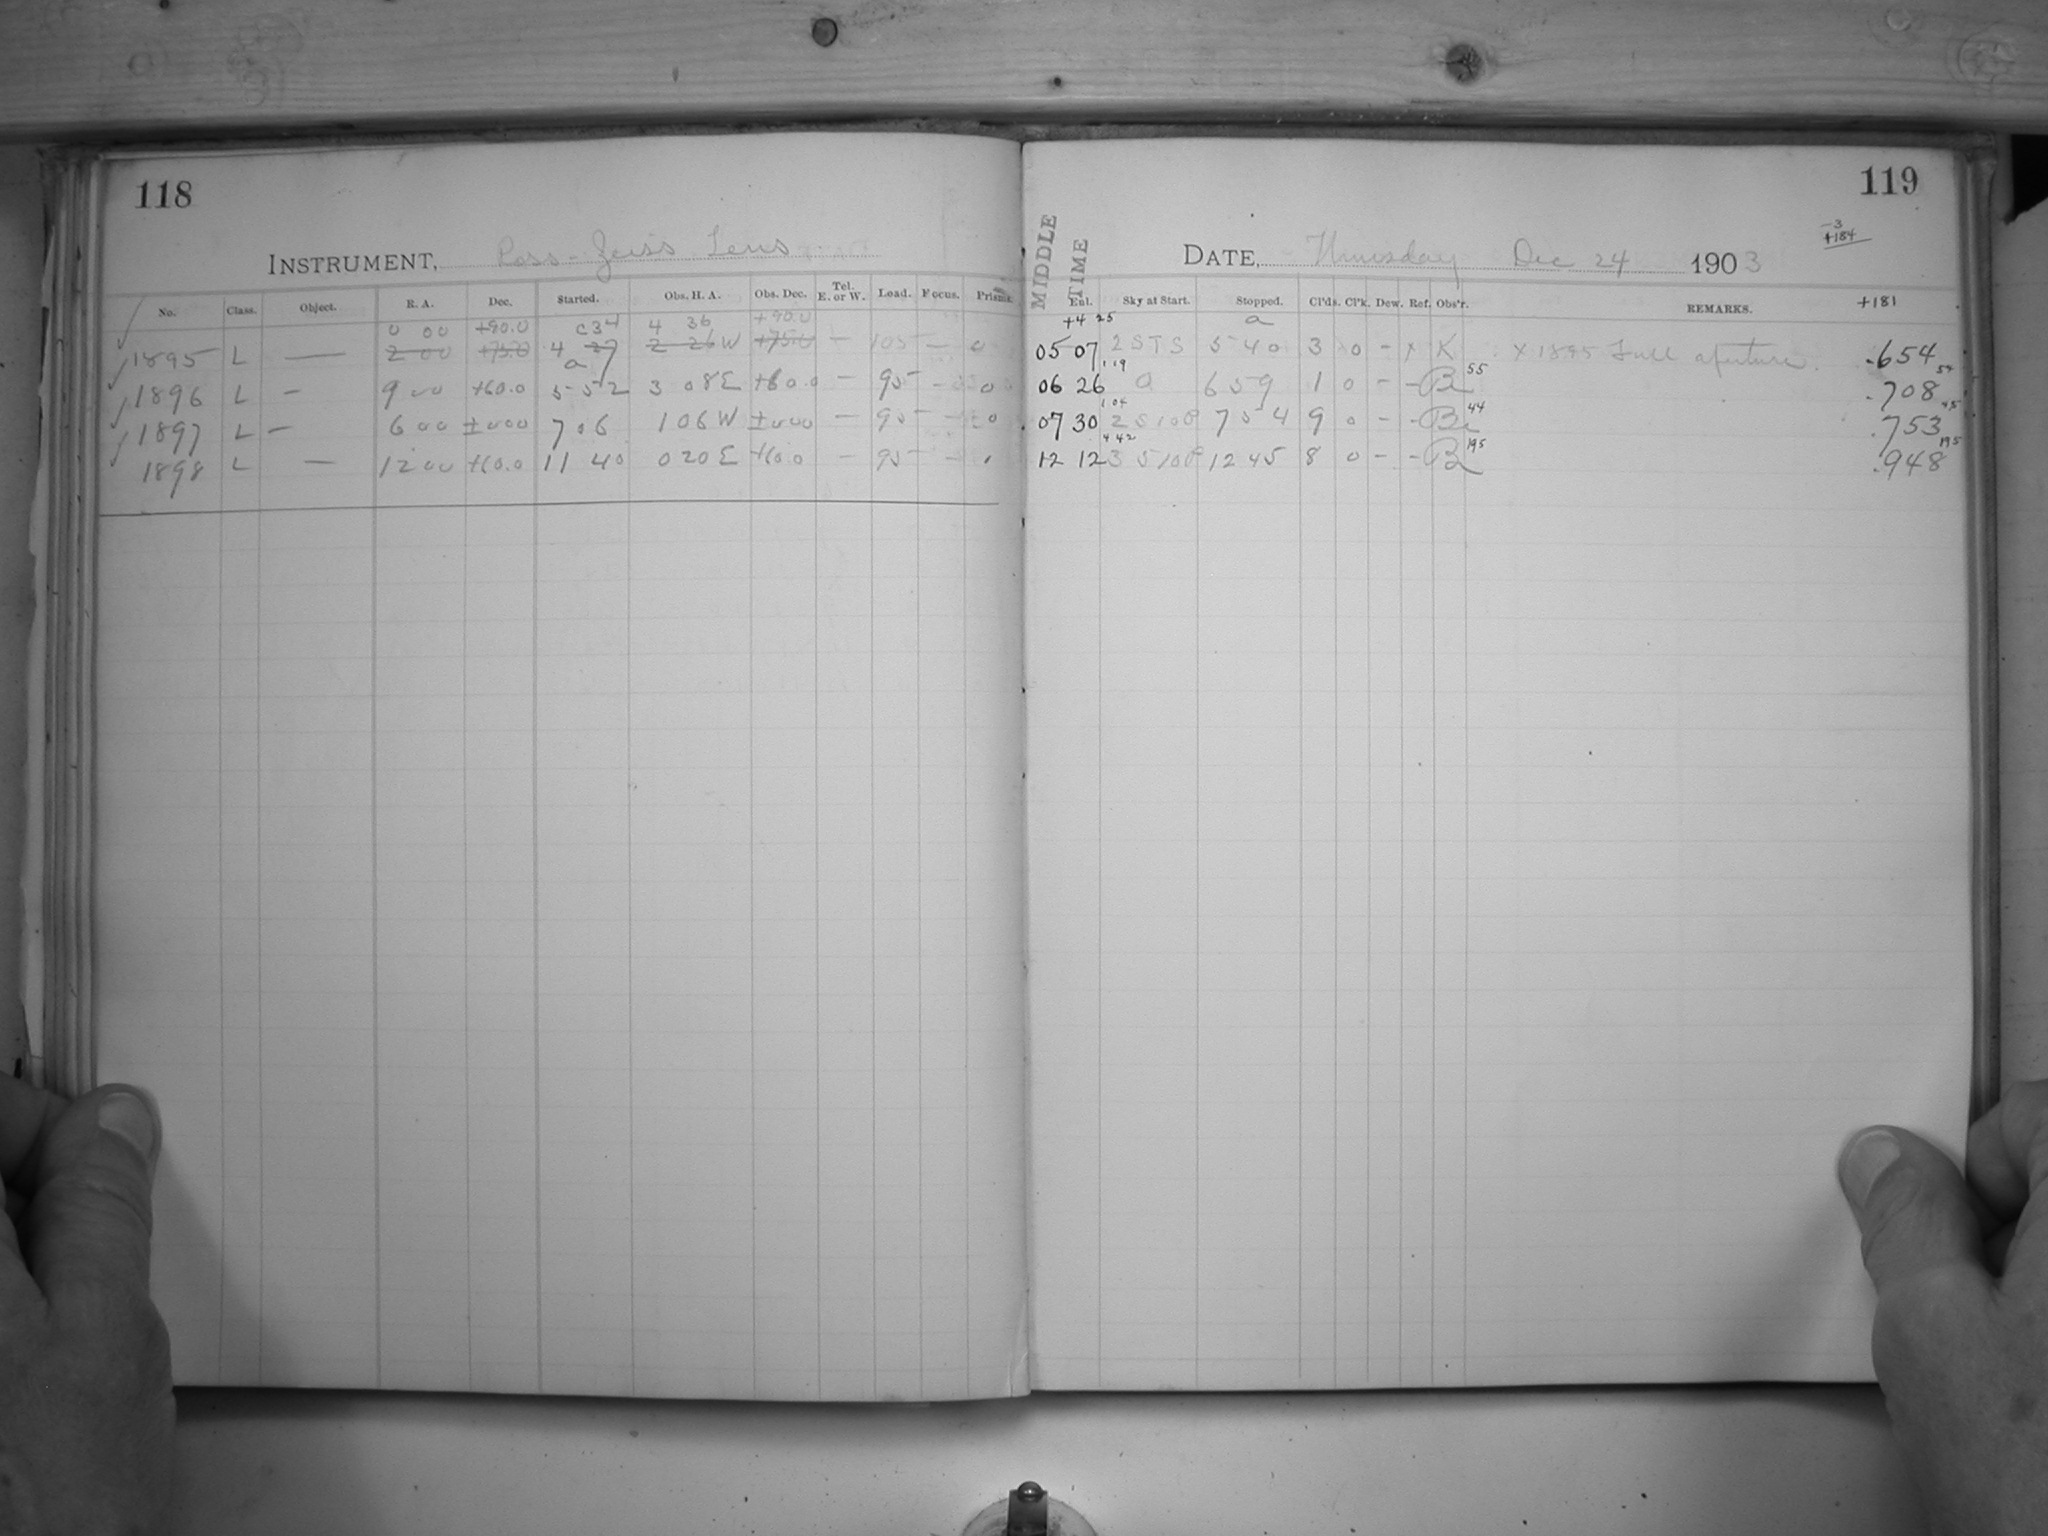 118
INSTRUMENT, Ross-Zeiss Lens
No. Class. Object. R. A. Dec. Started. Obs. H. A. Obs. Dec. Tel. E. or W. Load. Focus. Prisms.
0 00 +90.0 c34 4 36 +90.0
1895 L — 2 00 +75.0 4 27 2 26 W +75.0 – 105 – 0
a
1896 L – 9 00 +60.0 5 52 3 08 E +60.0 – 95 – 0
1897 L – 6 00 ±000 7 06 1 06 W ±000 – 95 – 0
1898 L — 12 00 +60.0 11 40 0 20 E +60.0 – 95 –
119
-3
+184
MIDDLE TIME
DATE, Thursday Dec 24 1903
Enl. Sky at Start. Stopped. Cl'ds. Cl'k. Dew. Ref. Obs'r. REMARKS. +181
+4 25 a
05 07 2 S T S 5 40 3 0 – x K x 1895 Full aperture. .654
1 19 55 54
06 26 a 6 59 1 0 – – B .708
1 04 44 45
07 30 2 S 10 P 7 54 9 0 – – B .753
4 42 195 195
12 12 3 S 10 P 12 45 8 0 – – B .948